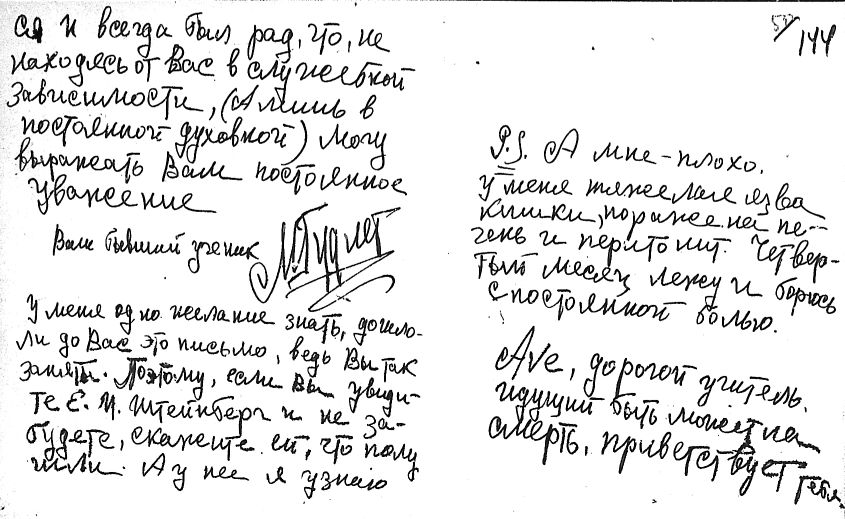 ся и всегда был рад, что, не
находясь от Вас в служебной
зависимости, (а лишь в
постоянной духовной) могу
выражать Вам постоянное
уважение
Ваш бывший ученик М. Гудлет
У меня одно желание знать, дошло-
ли до Вас это письмо, ведь Вы так
заняты. Поэтому, если Вы увиди-
те Е. И. Штейнберг и не за-
будете, скажите ей, что полу
чили. А у нее я узнаю
144
P.S. А мне - плохо.
У меня тяжелая язва
кишки, поражена пе-
чень и перитонит. Четвер-
тый месяц лежу и борюсь
с постоянной болью.
Ave, дорогой учитель.
идущий быть может на
смерть, приветствует тебя.